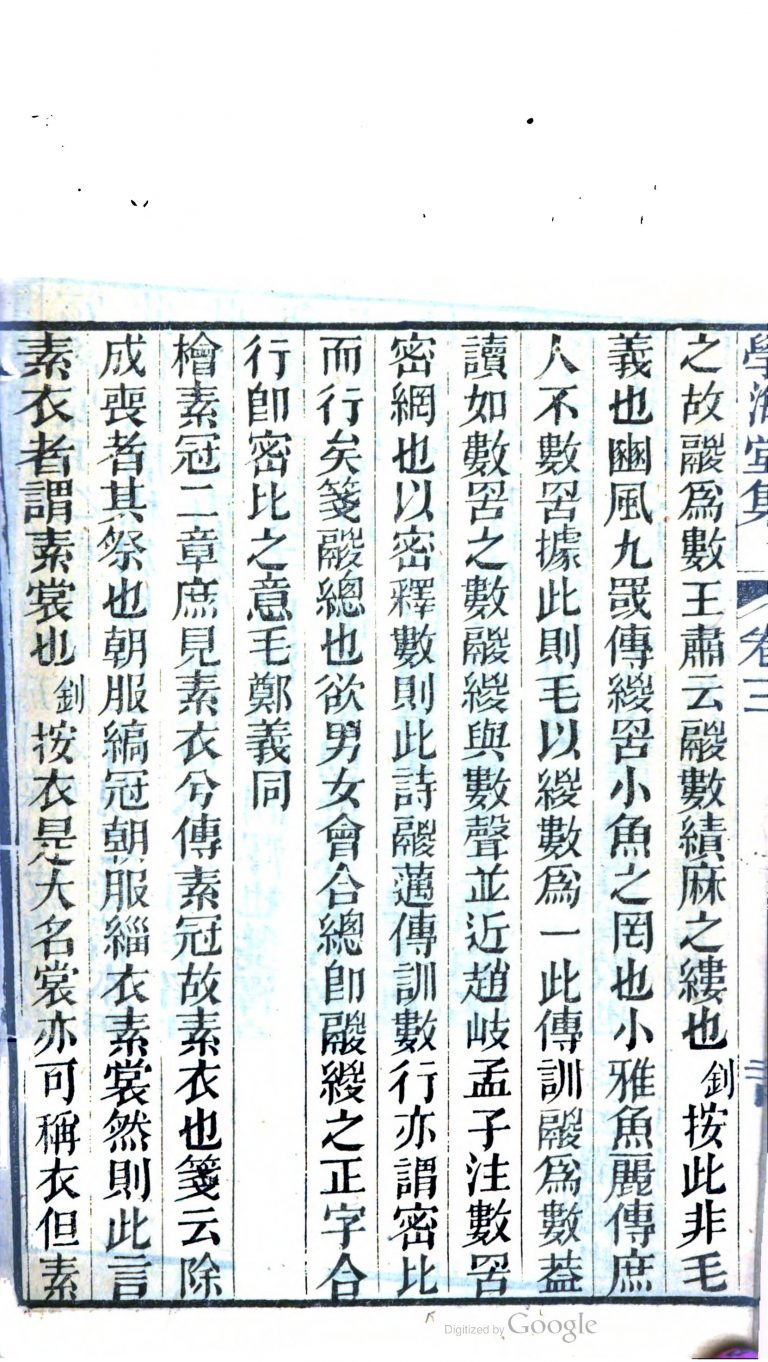 學海堂集 卷三
之故鬷爲數王肅云鬷數績麻之縷也釗按此非毛
義也豳風九罭傳緵罟小魚之罔也小雅魚麗傳庶
人不數罟據此則毛以緵數爲一此傳訓鬷爲數葢
讀如數罟之數鬷緵與數聲並近趙岐孟子注數罟
密網也以密釋數則此詩鬷邁傳訓數行亦謂密比
而行矣箋鬷總也欲男女會合總卽鬷緵之正字合
行卽密比之意毛鄭義同
檜素冠二章庶見素衣兮傳素冠故素衣也箋云除
成喪者其祭也朝服縞冠朝服緇衣素裳然則此言
素衣者謂素裳也釗按衣是大名裳亦可稱衣但素
Digitized by Google